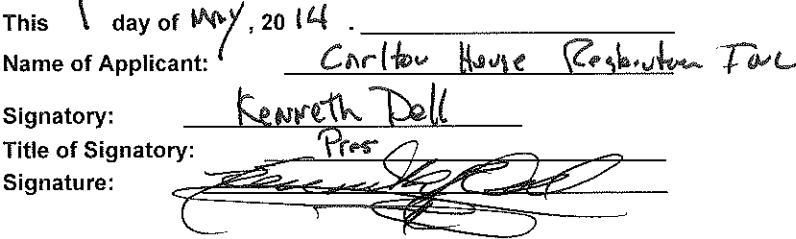 This 1 day of May, 2014.
Name of Applicant: Carlton House Restaurant Inc
Signatory: Kenneth Dell
Title of Signatory: Pres
Signature: